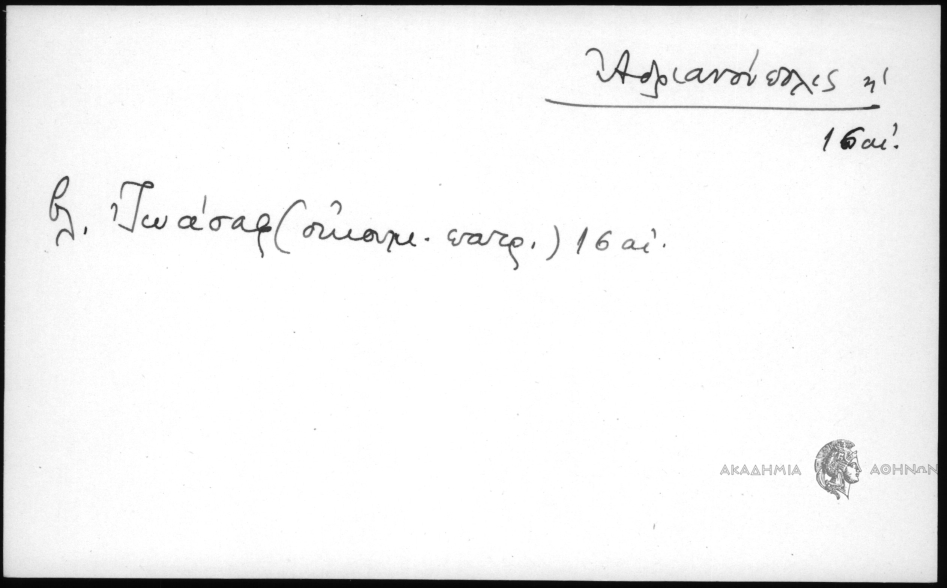 Ἀδριανούπολις ἡ
16 αἰ.
βλ. Ἰωάσαφ (οἰκουμ. πατρ.) 16 αἰ.
ΑΚΑΔΗΜΙΑ ΑΘΗΝΩΝ